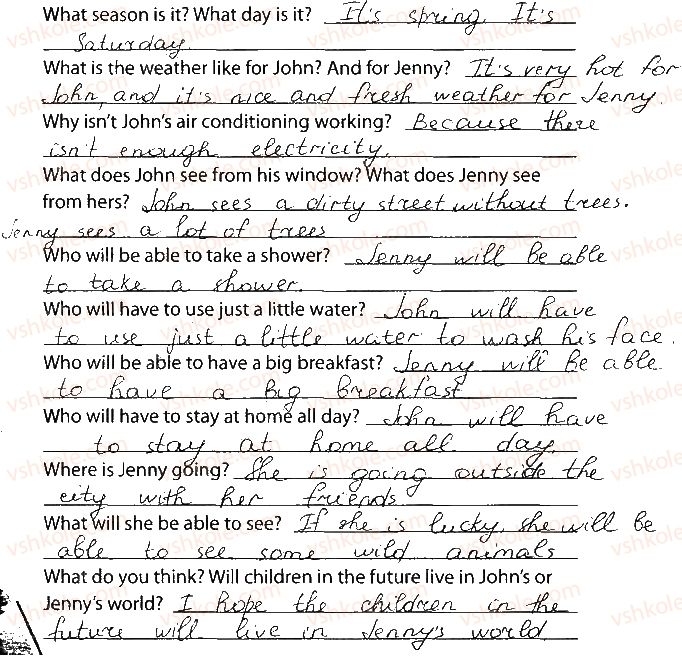 What season is it? What day is it? It's spring. It's
Saturday.
What is the weather like for John? And for Jenny? It's very hot for
John, and it's nice and fresh weather for Jenny.
Why isn't John's air conditioning working? Because there
isn't enough electricity.
What does John see from his window? What does Jenny see
from hers? John sees a dirty street without trees.
Jenny sees a lot of trees
Who will be able to take a shower? Jenny will be able
to take a shower.
Who will have to use just a little water? John will have
to use just a little water to wash his face.
Who will be able to have a big breakfast? Jenny will be able
to have a big breakfast
Who will have to stay at home all day? John will have
to stay at home all day.
Where is Jenny going? She is going outside the
city with her friends.
What will she be able to see? If she is lucky, she will be
able to see some wild animals
What do you think? Will children in the future live in John's or
Jenny's world? I hope the children in the
future will live in Jenny's world